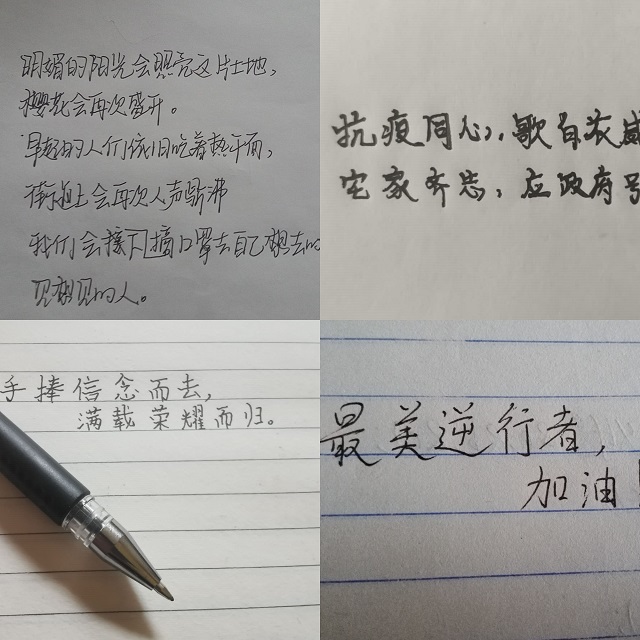 明媚的阳光会照亮这片土地，
樱花会再次盛开。
早起的人们依旧吃着热干面，
街道上会再次人声鼎沸
我们会摘口罩去自己想去的
见想见的人。
抗疫同心，歌自浓
宅家齐忠，应政府号
手捧信念而去，
满载荣耀而归。
最美逆行者，
加油！